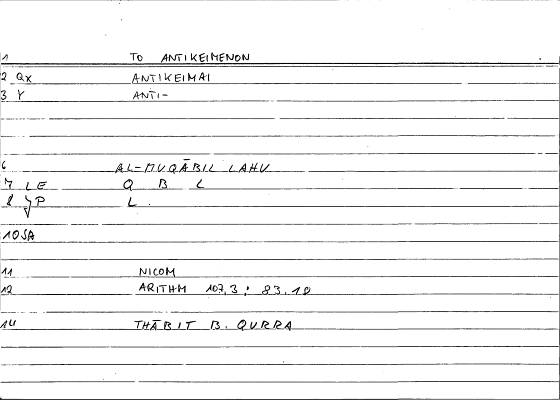 1 TO ANTIKEIMENON
2 QX ANTIKEIMAI
3 Y ANTI-
6 AL-MUQĀBIL LAHU
7 LE Q B L
8 JP L
10 SA
11 NICOM
12 ARITHM 107,3 : 83.18
14 THĀBIT B. QURRA